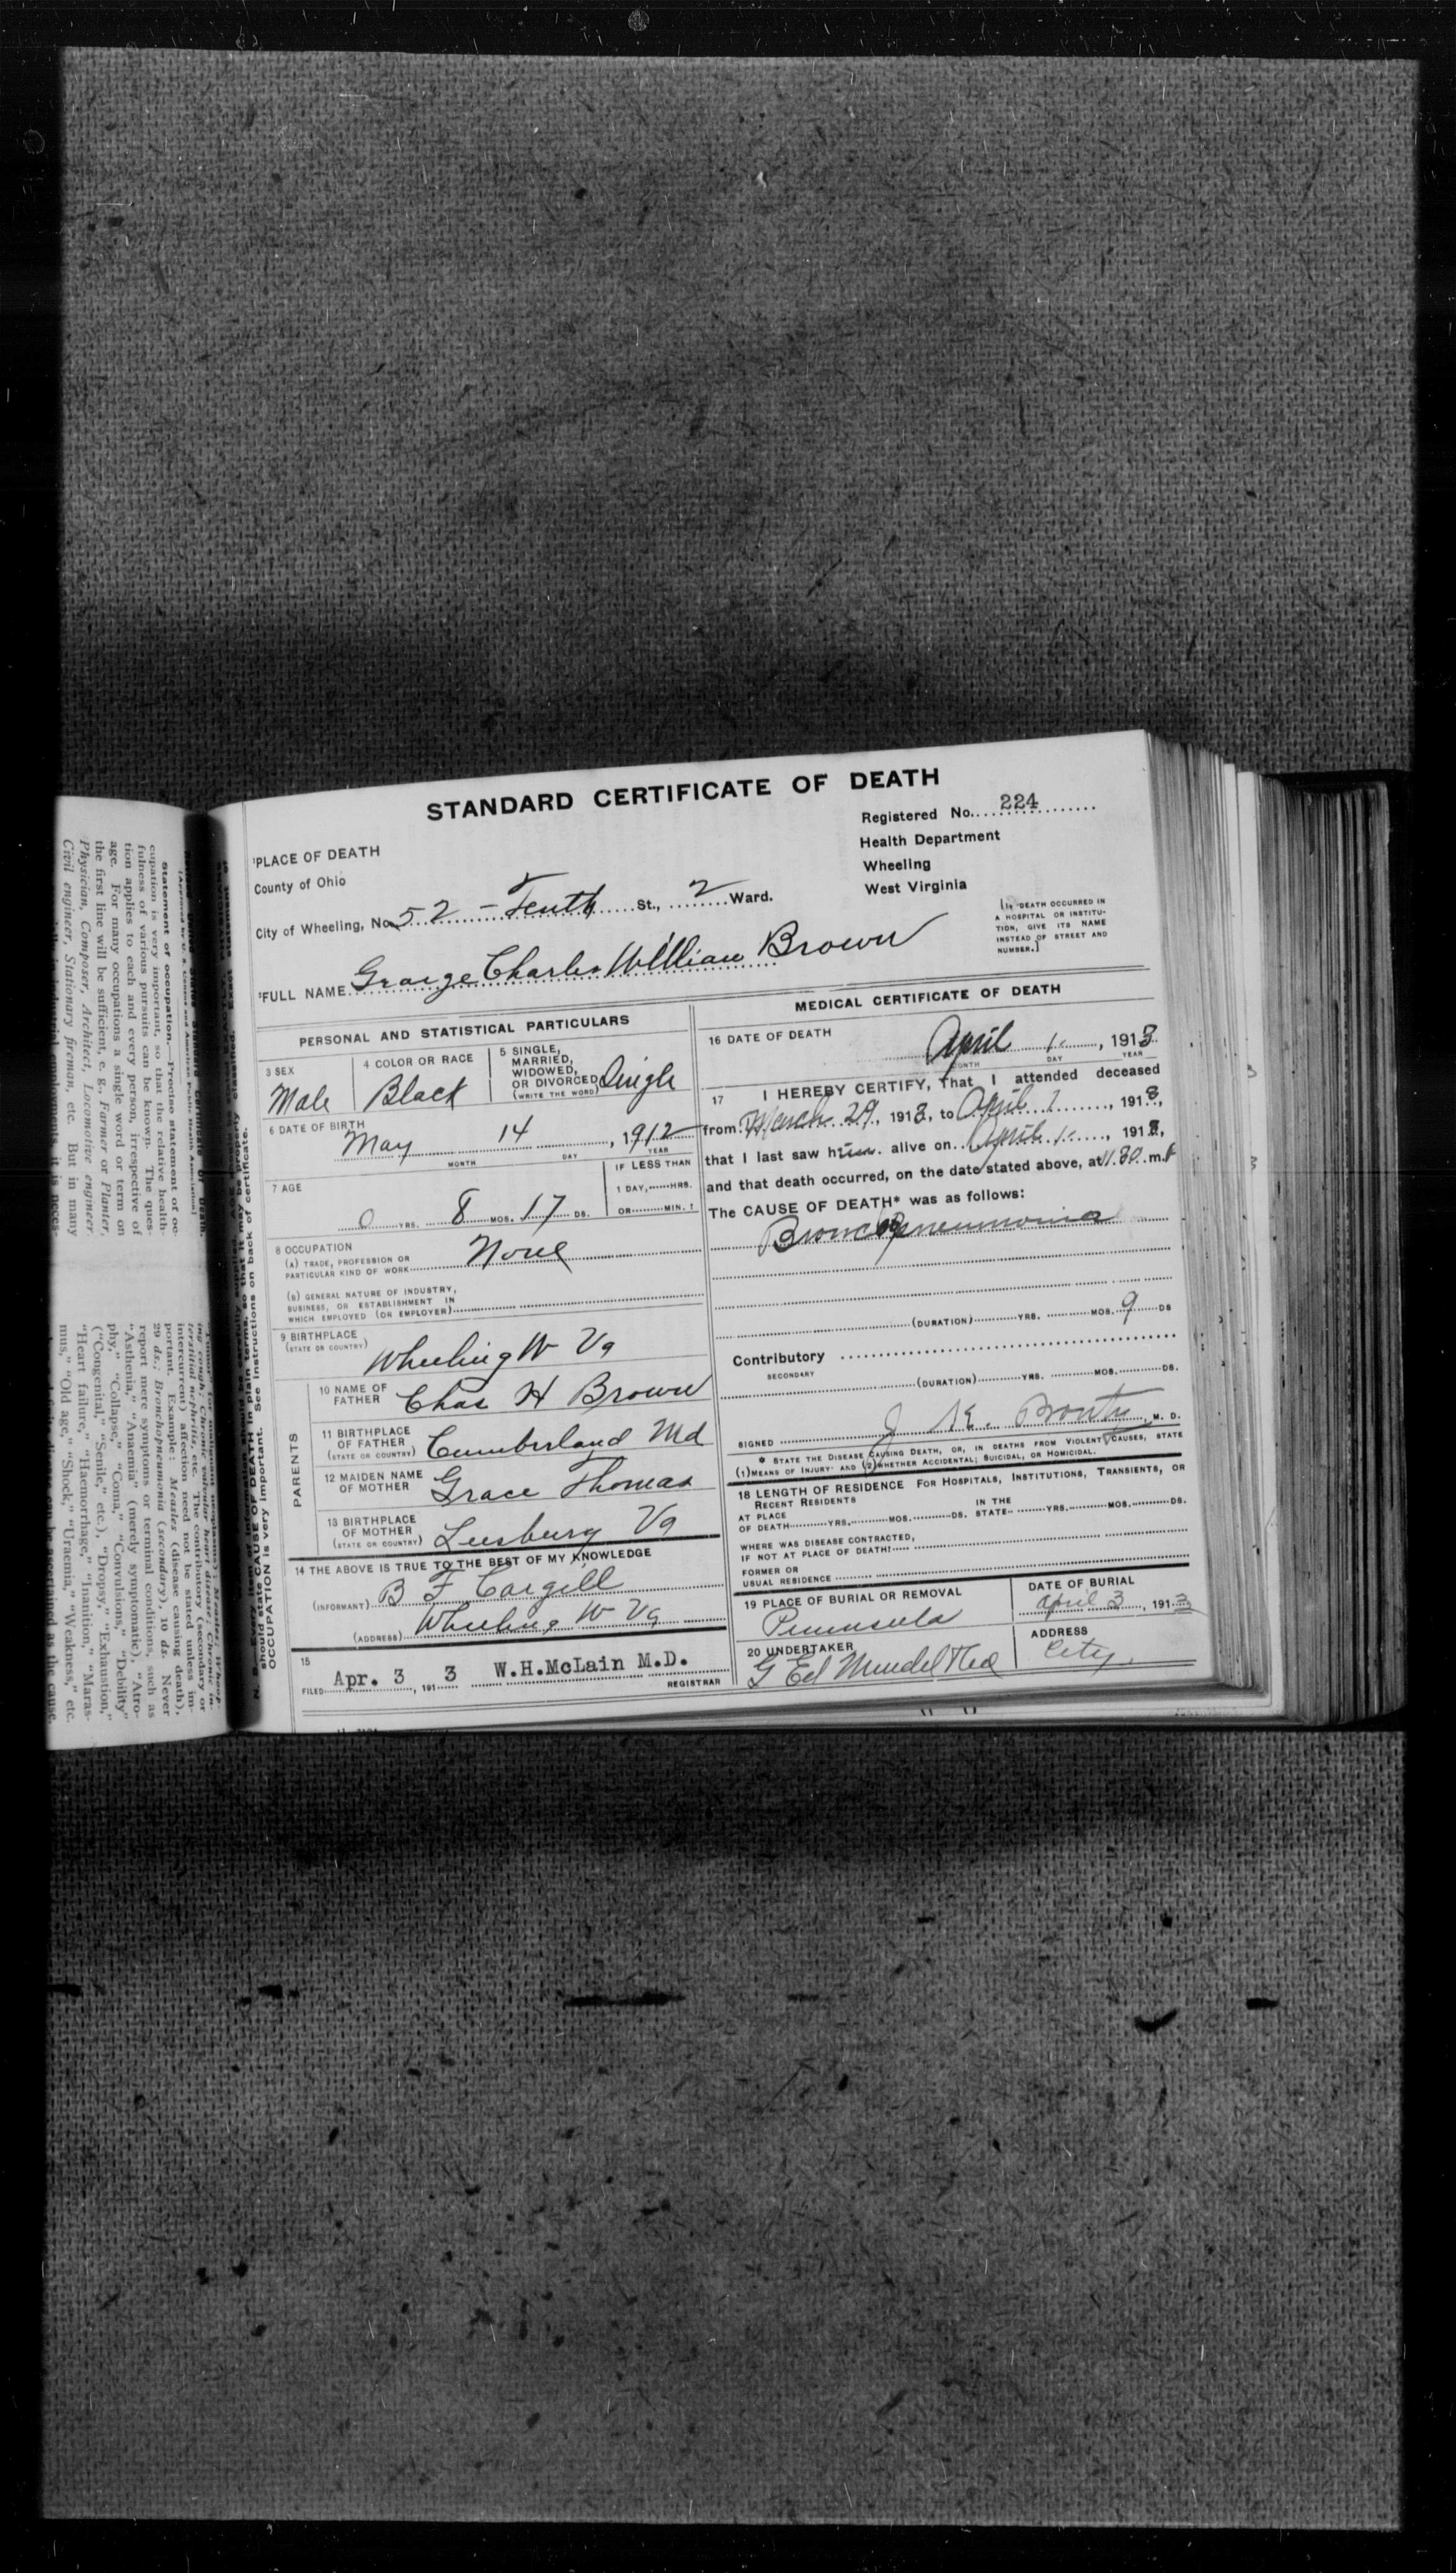 STANDARD CERTIFICATE OF DEATH
Registered No. 224
Health Department
Wheeling
West Virginia
1PLACE OF DEATH
County of Ohio
City of Wheeling, No. 52 - Tenth St., 2 Ward.
[IF DEATH OCCURRED IN
A HOSPITAL OR INSTITU-
TION, GIVE ITS NAME
INSTEAD OF STREET AND
NUMBER.]
2FULL NAME George Charles William Brown
PERSONAL AND STATISTICAL PARTICULARS
3 SEX
Male
4 COLOR OR RACE
Black
5 SINGLE,
MARRIED,
WIDOWED,
OR DIVORCED
(WRITE THE WORD)
Single
6 DATE OF BIRTH
May 14, 1912
MONTH DAY YEAR
7 AGE
0 YRS. 8 MOS. 17 DS.
IF LESS THAN
1 DAY, HRS.
OR MIN. ?
8 OCCUPATION
(A) TRADE, PROFESSION OR
PARTICULAR KIND OF WORK None
(B) GENERAL NATURE OF INDUSTRY,
BUSINESS, OR ESTABLISHMENT IN
WHICH EMPLOYED (OR EMPLOYER)
9 BIRTHPLACE
(STATE OR COUNTRY)
Wheeling W Va
PARENTS
10 NAME OF
FATHER
Chas H Brown
11 BIRTHPLACE
OF FATHER
(STATE OR COUNTRY)
Cumberland Md
12 MAIDEN NAME
OF MOTHER
Grace Thomas
13 BIRTHPLACE
OF MOTHER
(STATE OR COUNTRY)
Leesburg Va
14 THE ABOVE IS TRUE TO THE BEST OF MY KNOWLEDGE
(INFORMANT) B F Cargill
(ADDRESS) Wheeling W Va
15
FILED Apr. 3, 1913 W.H.McLain M.D.
REGISTRAR
MEDICAL CERTIFICATE OF DEATH
16 DATE OF DEATH
April 1, 1913
MONTH DAY YEAR
17 I HEREBY CERTIFY, That I attended deceased
from March 29, 1913, to April 1, 1913,
that I last saw him alive on April 1, 1913,
and that death occurred, on the date stated above, at 11.30 m.
The CAUSE OF DEATH* was as follows:
Broncopneumonia
(DURATION) YRS. MOS. 9 DS
Contributory
SECONDARY
(DURATION) YRS. MOS. DS.
SIGNED M. D.
* STATE THE DISEASE CAUSING DEATH, OR, IN DEATHS FROM VIOLENT CAUSES, STATE
(1) MEANS OF INJURY· AND (2) WHETHER ACCIDENTAL; SUICIDAL, OR HOMICIDAL.
18 LENGTH OF RESIDENCE FOR HOSPITALS, INSTITUTIONS, TRANSIENTS, OR
RECENT RESIDENTS
AT PLACE
OF DEATH YRS. MOS. DS.
IN THE
STATE YRS. MOS. DS.
WHERE WAS DISEASE CONTRACTED,
IF NOT AT PLACE OF DEATH?
FORMER OR
USUAL RESIDENCE
19 PLACE OF BURIAL OR REMOVAL
Peninsula
DATE OF BURIAL
April 3, 1913
20 UNDERTAKER
G Ed Mendel & Co
ADDRESS
City.
Statement of occupation.—Precise statement of oc-
cupation is very important, so that the relative health-
fulness of various pursuits can be known. The ques-
tion applies to each and every person, irrespective of
age. For many occupations a single word or term on
the first line will be sufficient, e. g., Farmer or Planter,
Physician, Composer, Architect, Locomotive engineer,
Civil engineer, Stationary fireman, etc. But in many
ing cough; Chronic valvular heart disease; Chronic in-
terstitial nephritis, etc. The contributory (secondary or
intercurrent) affection need not be stated unless im-
portant. Example: Measles (disease causing death),
29 ds.; Bronchopneumonia (secondary), 10 ds. Never
report mere symptoms or terminal conditions, such as
"Asthenia," "Anaemia" (merely symptomatic), "Atro-
phy," "Collapse," "Coma," "Convulsions," "Debility"
("Congenital," "Senile," etc.), "Dropsy," "Exhaustion,"
"Heart failure," "Haemorrhage," "Inanition," "Maras-
mus," "Old age," "Shock," "Uraemia," "Weakness," etc.
should state CAUSE OF DEATH in plain terms, so that it may be properly classified.
OCCUPATION is very important. See instructions on back of certificate.